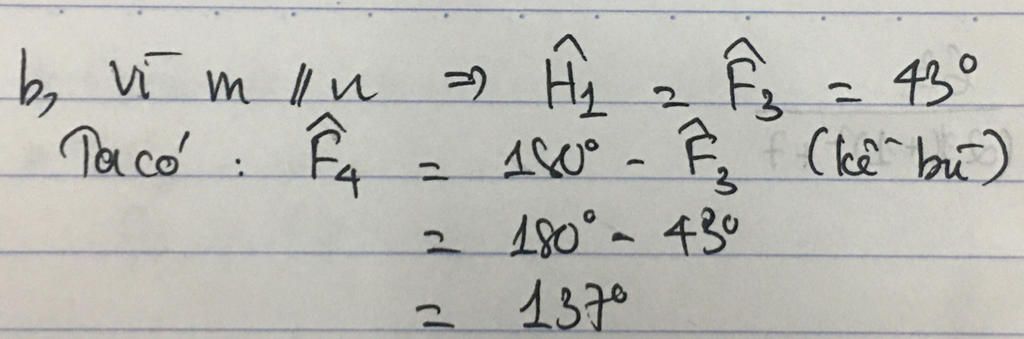 b, vì m // n ⇒ Ĥ₁ = F̂₃ = 43°
Ta có : F̂₄ = 180° - F̂₃ (kề bù)
= 180° - 43°
= 137°